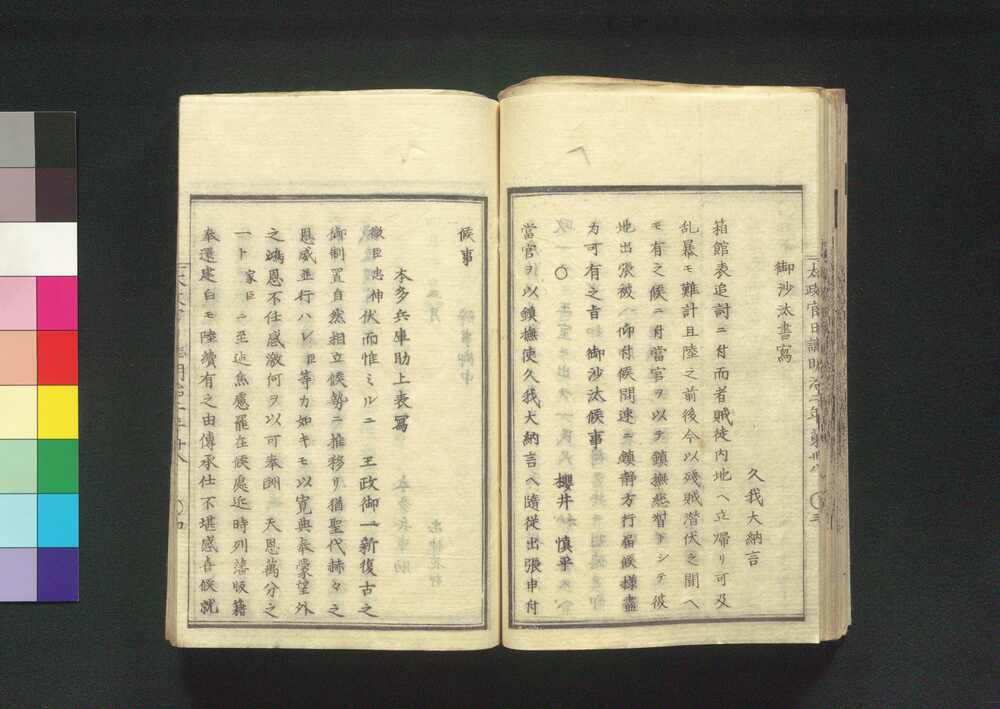 太政官日誌明治二年第卅八
三
久我大納言
御沙汰書寫
箱館表追討ニ付而者賊徒内地ヘ立帰リ可及
乱暴モ難計且陸之前後今以残賊潜伏之聞ヘ
モ有之候ニ付當官ヲ以テ鎮撫惣督トシテ彼
地出張被 仰付候間速ニ鎮静方行届候様盡
力可有之旨 御沙汰候事
○ 櫻井 慎平
當官ヲ以鎮撫使久我大納言ヘ隨従出張申付
候事
本多兵庫助上表寫
微臣忠伸伏而惟ミルニ 王政御一新復古之
御制置自然相立候勢ニ推移リ猶聖代赫々之
恩威並行ハレ臣等力如キモ以寛典奉蒙望外
之鴻恩不任感激何ヲ以可奉酬 天恩萬分之
一ト家臣ニ至迠焦慮罷在候處近時列藩版籍
奉還建白モ陸續有之由傳承仕不堪感喜候就
四